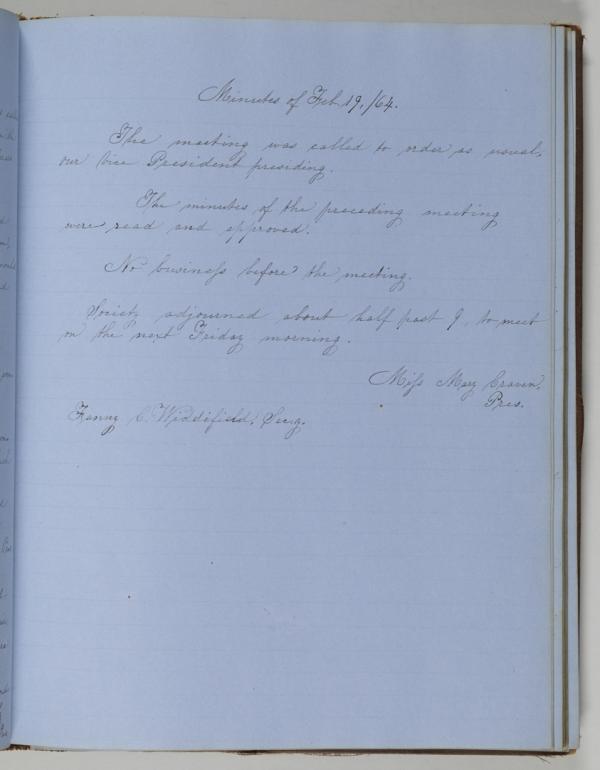 Minutes of Feb 19, /64.
The meeting was called to order as usual,
our Vice President presiding.
The minutes of the preceding meeting
were read and approved.
No business before the meeting.
Society adjourned about half past 9, to meet
on the next Friday morning.
Miss Mary Craven,
Pres.
Fanny C. Widdifield, Secy.